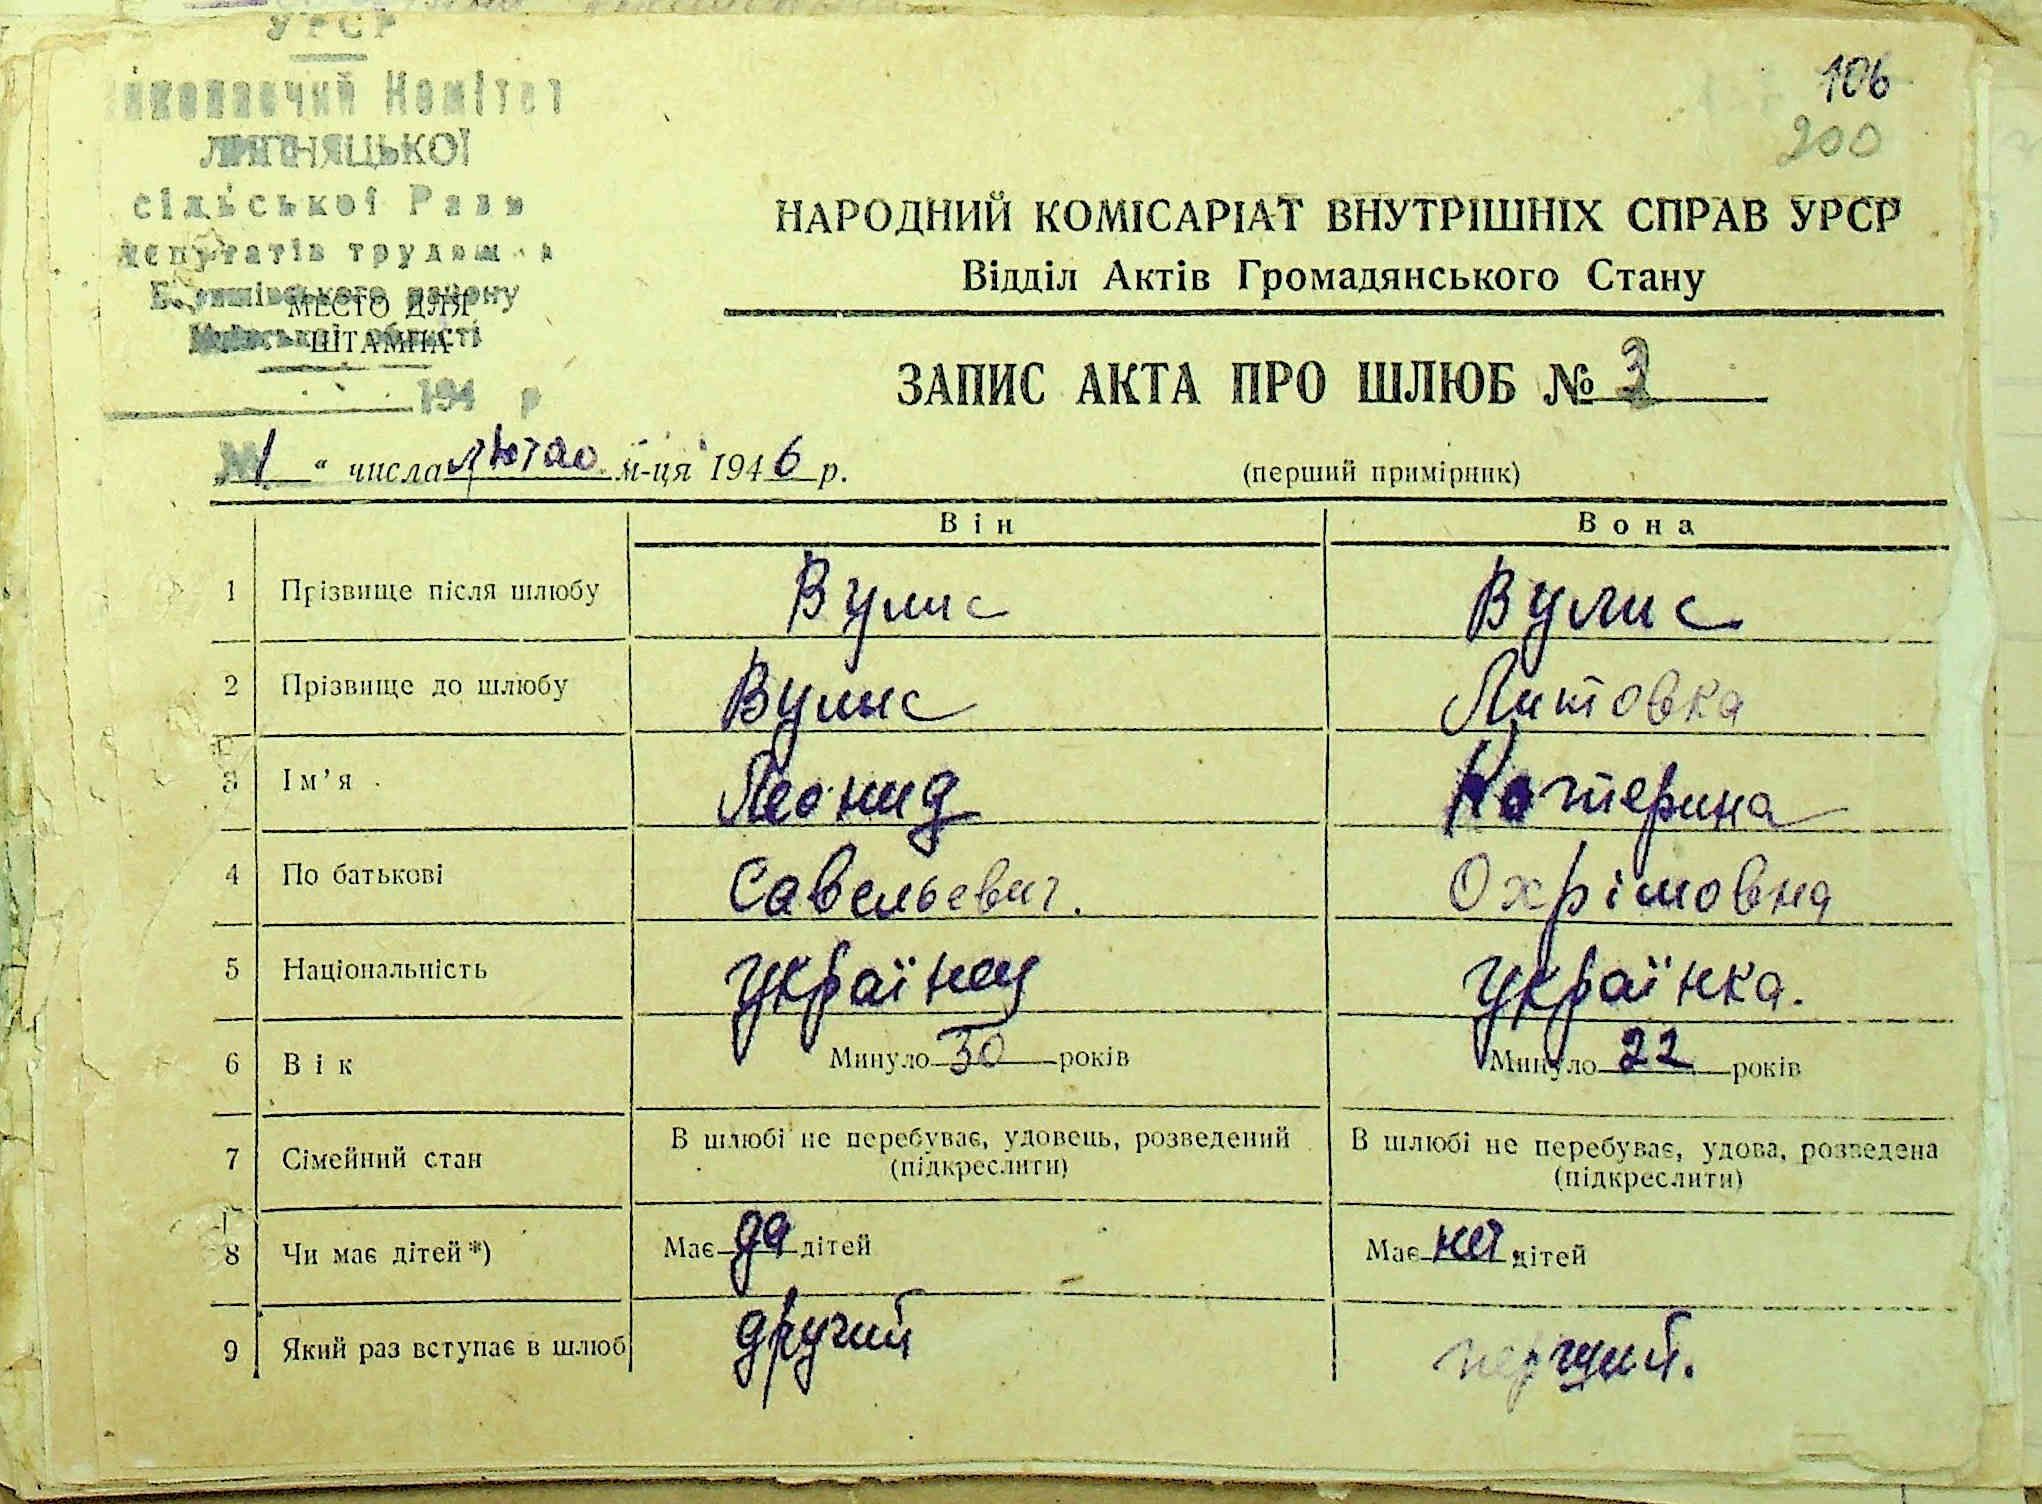 УРСР
Комітет
сільської Ради
депутатів трудящ
району
області
МЕСТО ДЛЯ
ШТАМПА
194 р
106
200
НАРОДНИЙ КОМІСАРІАТ ВНУТРІШНІХ СПРАВ УРСР
Відділ Актів Громадянського Стану
ЗАПИС АКТА ПРО ШЛЮБ № 3
1 " числа лютого м-ця 1946 р.
(перший примірник)
Він Вона
1 Прізвище після шлюбу Вулис Вулис
2 Прізвище до шлюбу Вулис Литовка
3 Ім'я Леонид Катерина
4 По батькові Савельевич. Охрімовна
5 Національність українец українка.
6 Вік Минуло 30 років Минуло 22 років
7 Сімейний стан В шлюбі не перебуває, удовець, розведений (підкреслити) В шлюбі не перебуває, удова, розведена (підкреслити)
8 Чи має дітей*) Має да дітей Має нет дітей
9 Який раз вступає в шлюб другий перший.